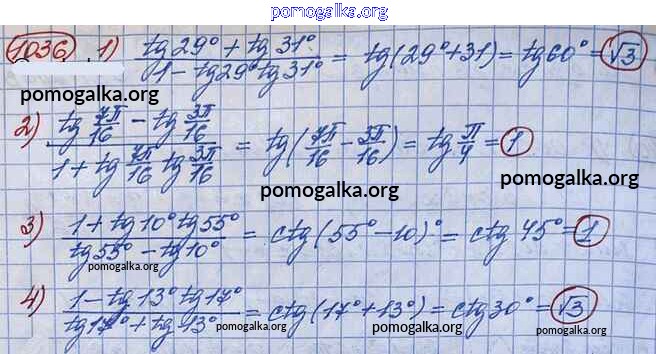 pomogalka.org
1036) 1) (tg 29° + tg 31°) / (1 - tg 29° tg 31°) = tg(29° + 31) = tg 60° = √3
pomogalka.org
2) (tg 7π/16 - tg 3π/16) / (1 + tg 7π/16 tg 3π/16) = tg(7π/16 - 3π/16) = tg π/4 = 1
pomogalka.org
pomogalka.org
3) (1 + tg 10° tg 55°) / (tg 55° - tg 10°) = ctg(55° - 10)° = ctg 45° = 1
pomogalka.org
4) (1 - tg 13° tg 17°) / (tg 17° + tg 13°) = ctg(17° + 13°) = ctg 30° = √3
pomogalka.org pomogalka.org pomogalka.org